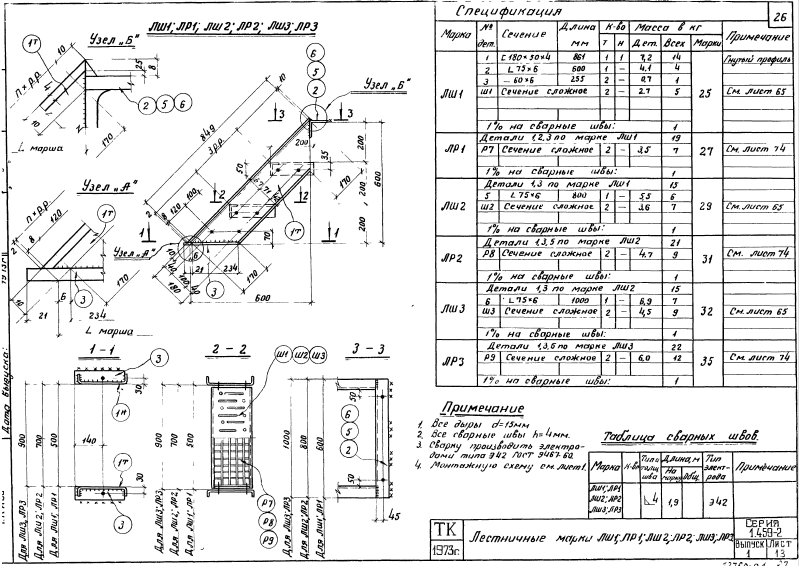 ЛШ1; ЛР1; ЛШ2; ЛР2; ЛШ3; ЛР3
Узел „Б"
1т
п×р.р.
10
25
8
2 5 6
L марша
170
Узел „А"
п×р.р.
120
8
2
1т
3
170
Б
21
234
L марша
849
3 р.р.
10
6
5
2
Узел „Б"
3
3
200
35
50
200
200, 200
600
170
2
2
8
120
100
1т
1
1
Узел „А"
70
10
40
180
180
60
21
Б
234
3
170
600
1-1
3
30
1н
140
900
700
500
30
1т
3
Для ЛШ3, ЛР3
Для ЛШ2, ЛР2
Для ЛШ1, ЛР1
2-2
Ш1 Ш2 Ш3
900
700
500
Р7
Р8
Р9
Для ЛШ3; ЛР3
Для ЛШ2; ЛР2
Для ЛШ1; ЛР1
3-3
50
6
5
2
50
1000
800
600
45
Для ЛШ3, ЛР3
Для ЛШ2, ЛР2
Для ЛШ1, ЛР1
Дата выпуска:
26
Спецификация
Марка № дет. Сечение Длина мм К-во т н Масса в кг Дет. Всех Марки Примечание
ЛШ1 25
1 [180×50×4 861 1 1 7,2 14 Гнутый профиль
2 L 75×6 600 1 – 4,1 4
3 – 60×6 255 2 – 0,7 1
Ш1 Сечение сложное 2 – 2.7 5 См. лист 65
1% на сварные швы: 1
ЛР1 27
Детали 1,2,3 по марке ЛШ1 19
Р7 Сечение сложное 2 – 3,5 7 См. лист 74
1% на сварные швы: 1
ЛШ2 29
Детали 1,3 по марке ЛШ1 15
5 L 75×6 800 1 – 5,5 6
Ш2 Сечение сложное 2 – 3.6 7 См. лист 65
1% на сварные швы: 1
ЛР2 31
Детали 1,3,5 по марке ЛШ2 21
Р8 Сечение сложное 2 – 4.7 9 См. лист 74
1% на сварные швы: 1
ЛШ3 32
Детали 1,3 по марке ЛШ2 15
6 L 75×6 1000 1 – 6,9 7
Ш3 Сечение сложное 2 – 4,5 9 См. лист 65
1% на сварные швы: 1
ЛР3 35
Детали 1,3,6 по марке ЛШ3 22
Р9 Сечение сложное 2 – 6,0 12 См. лист 74
1% на сварные швы: 1
Примечание
1. Все дыры d=15мм
2. Все сварные швы h=4мм.
3. Сварку производить электро-
дами типа Э42 ГОСТ 9467-60.
4. Монтажную схему см. лист 1.
Таблица сварных швов.
Марка К-во Тип и толщ. шва Длина, м На марку Общ. Тип элект-рода Примечание
ЛШ1; ЛР1
ЛШ2; ЛР2
ЛШ3; ЛР3
4 1,9 Э42
ТК
1973г.
Лестничные марки ЛШ1; ЛР1; ЛШ2; ЛР2; ЛШ3; ЛР3
Серия
1.459-2
Выпуск Лист
1 13